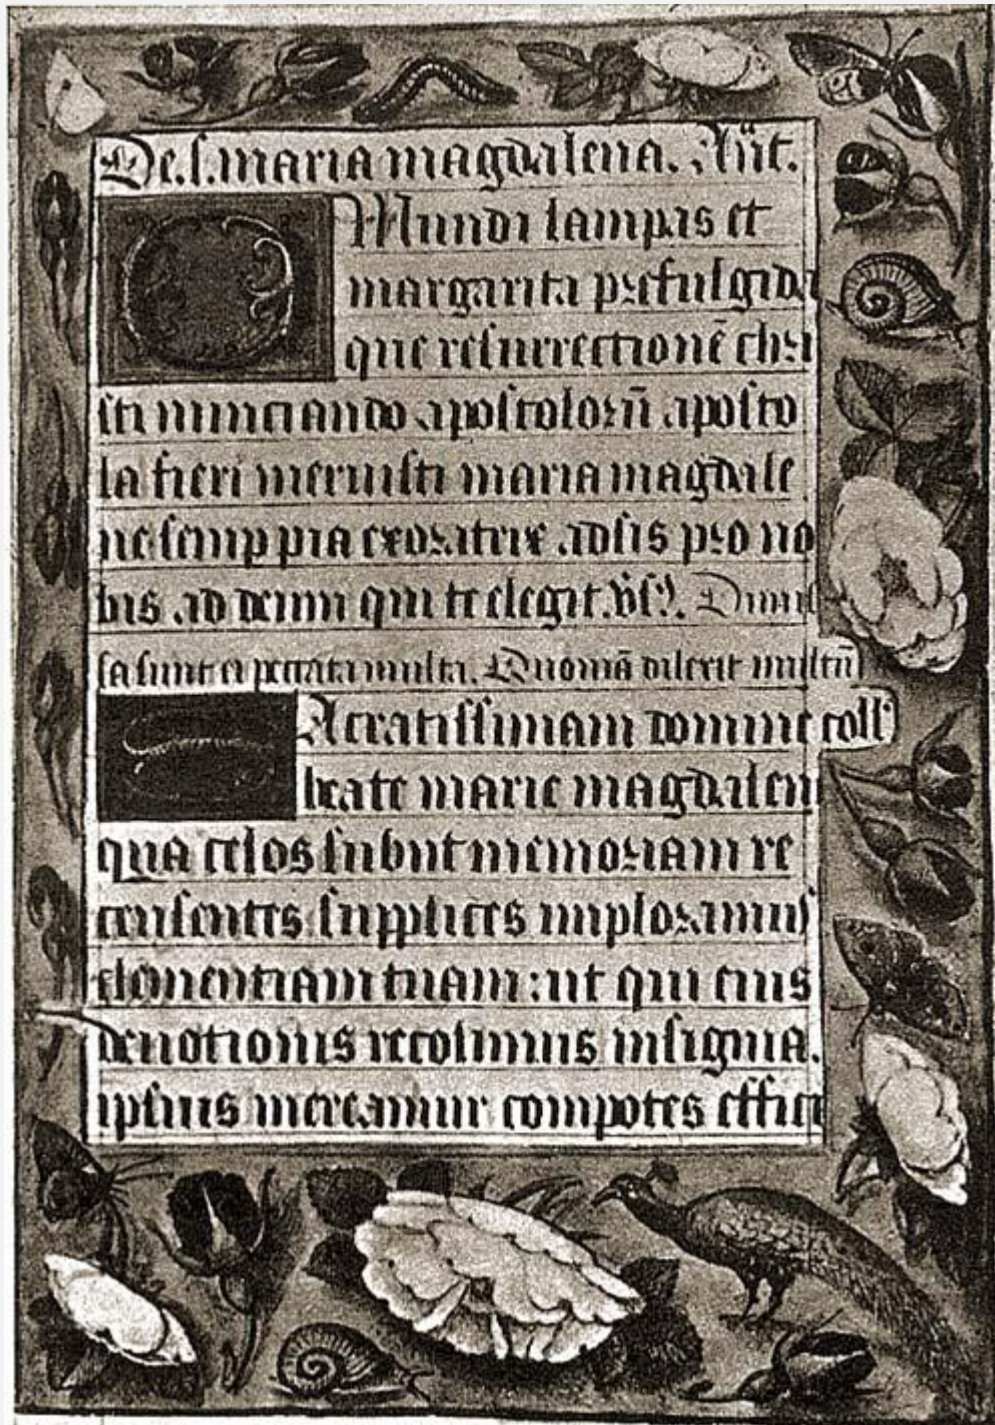 De.s.maria magdalena. Añt.
O Mundi lampas et
margarita prefulgida
que resurrectionē chri
sti nunciando apostolorū aposto
la fieri meruisti maria magdale
ne semp pia exoratrix adsis pro no
bis ad deum qui te elegit. Dimis
sa sunt ei peccata multa. Quoniā dilexit multū
Sacratissimam domine
beate marie magdalen
qua celos subiit memoriam re
censentes supplices imploramus
clementiam tuam: ut qui eius
deuotionis recolimus insignia.
ipsius mereamur compotes effici